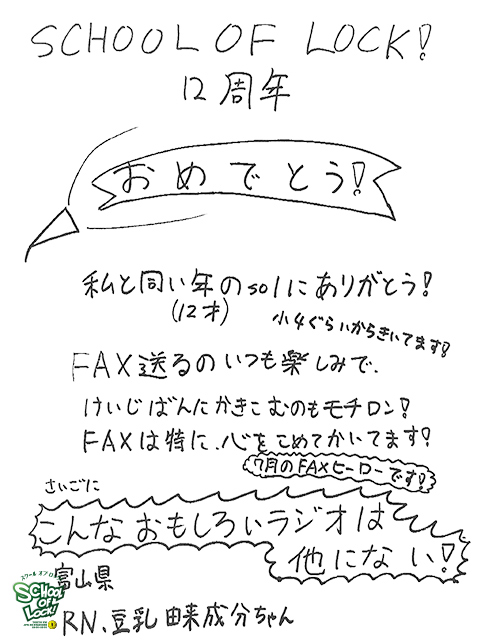 SCHOOL OF LOCK!
12周年
おめでとう!
私と同い年のsolにありがとう!
(12才)
小4ぐらいからきいてます!
FAX送るのいつも楽しみで、
けいじばんにかきこむのもモチロン!
FAXは特に、心をこめてかいてます!
7月のFAXヒーローです!
さいごに
こんなおもしろいラジオは
他にない!
富山県
RN、豆乳由来成分ちゃん
SCHOOL
OF
LOCK!